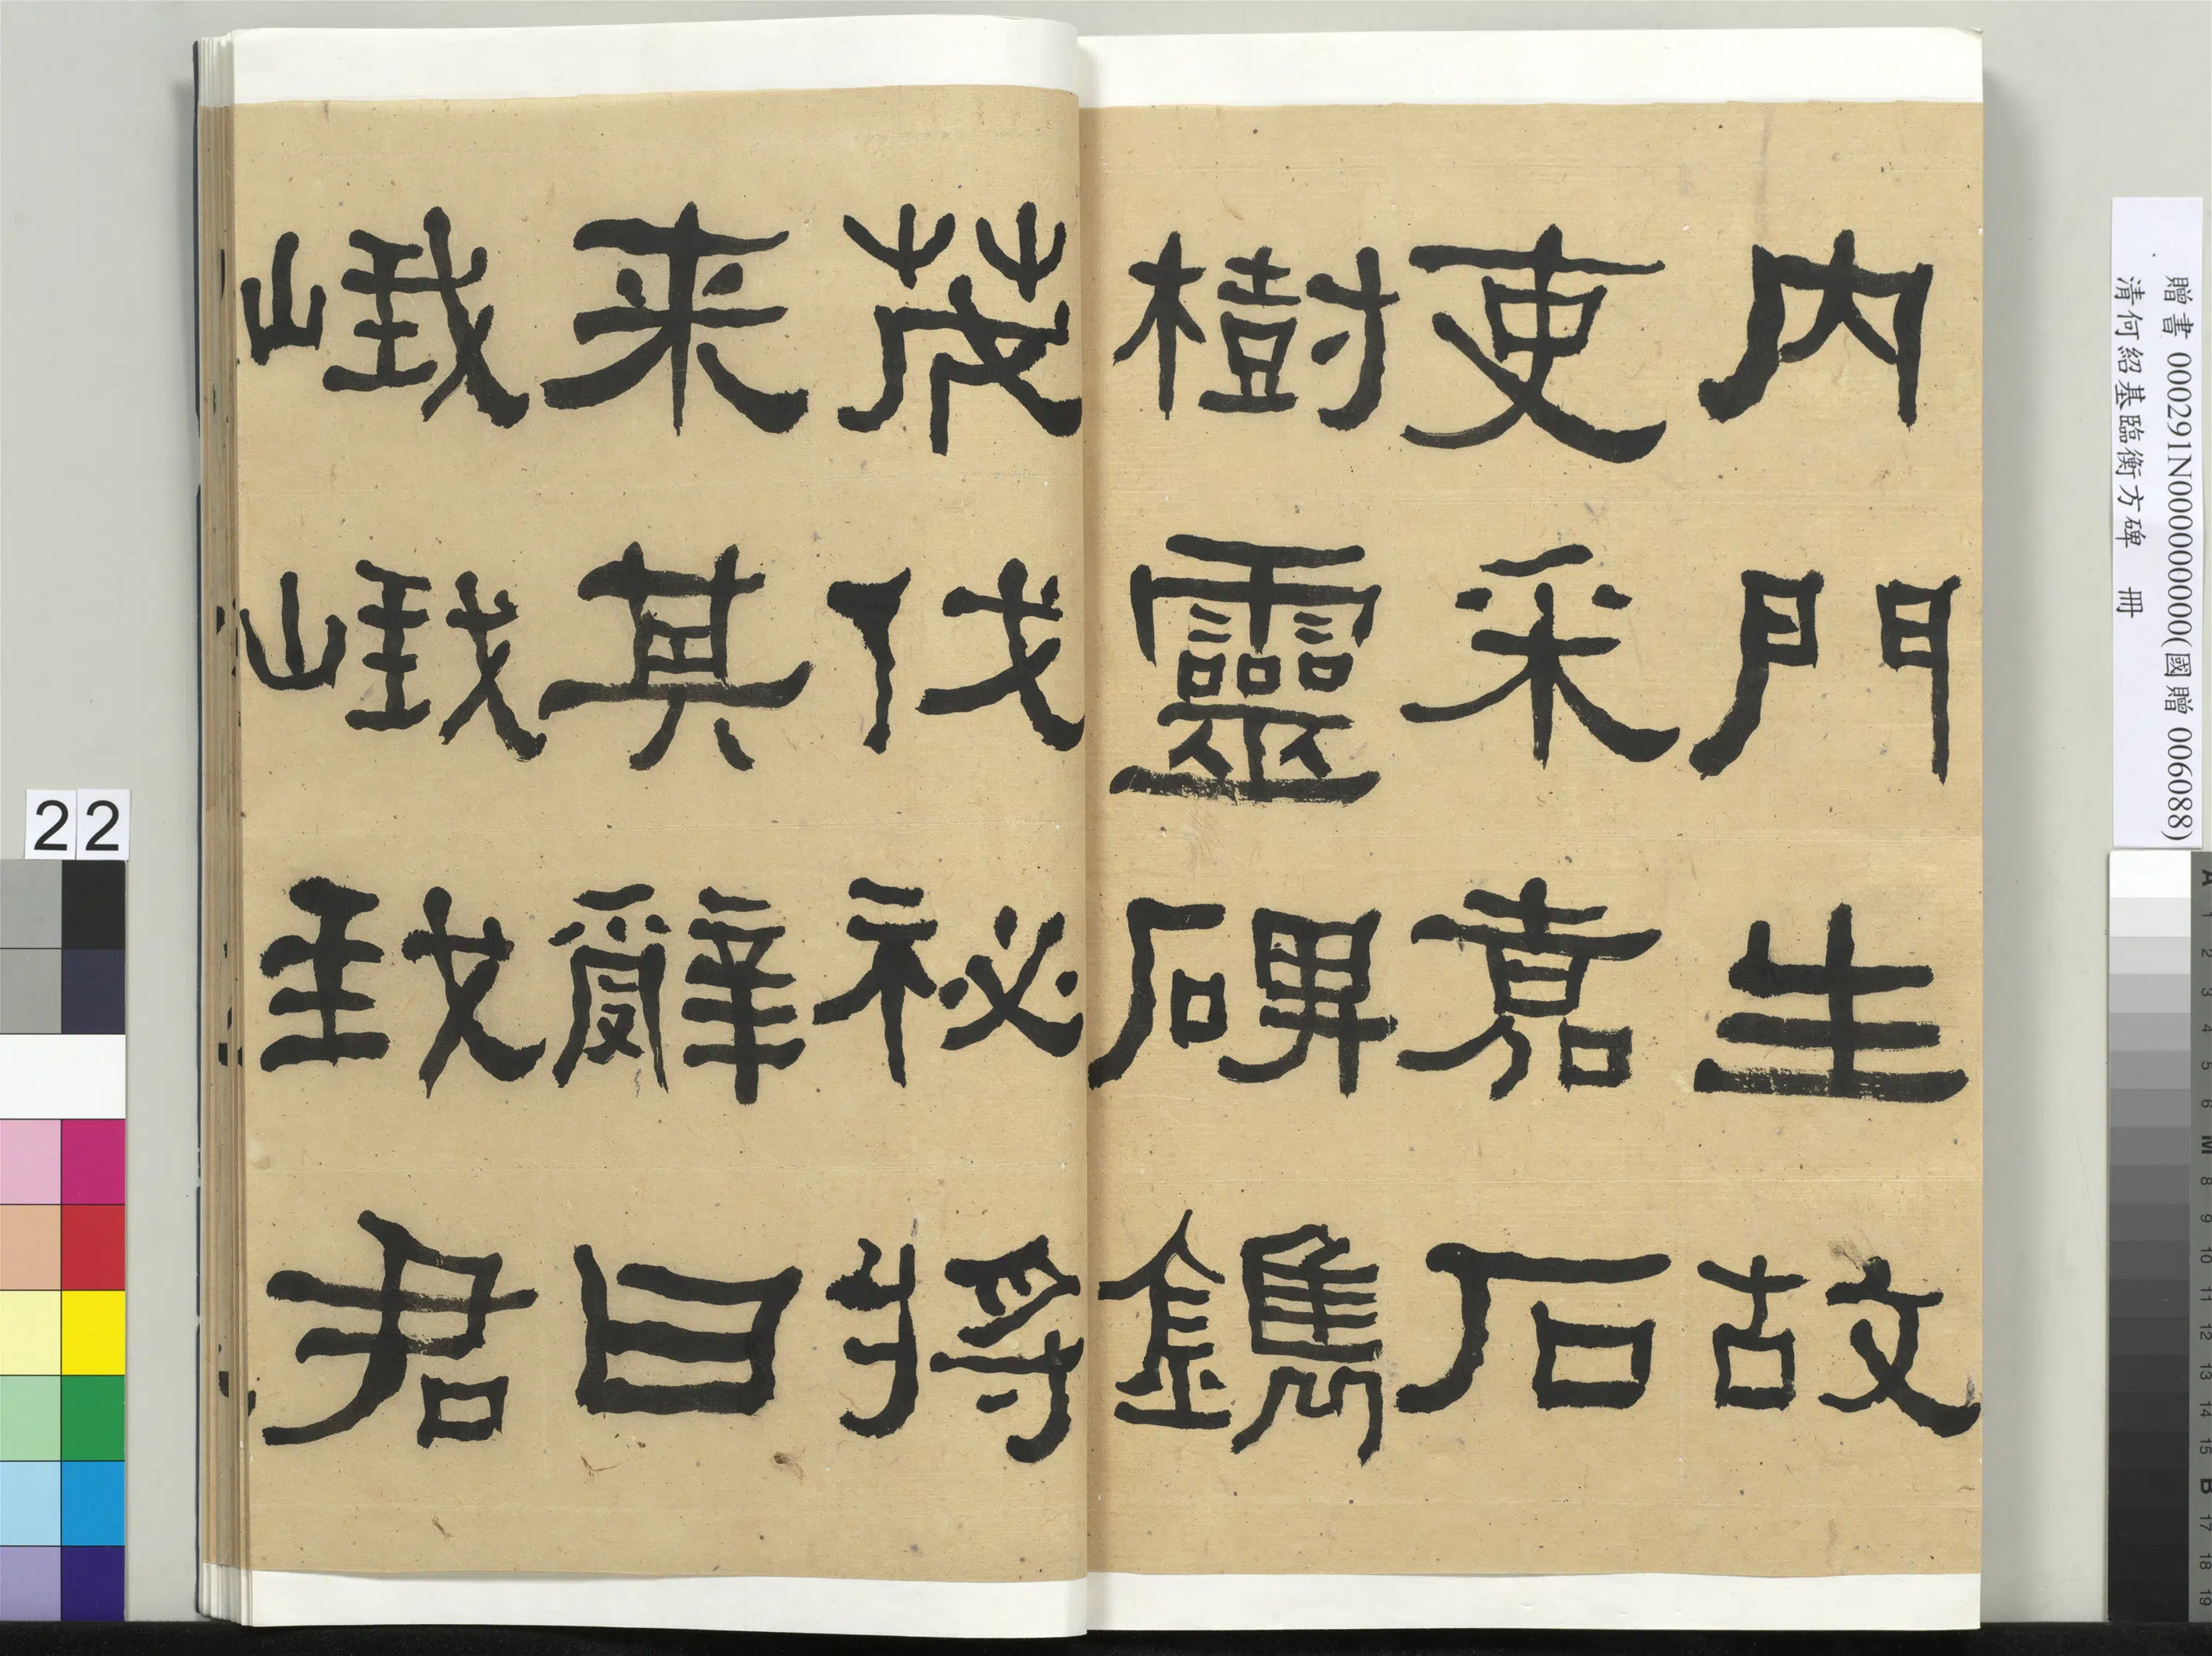 贈書 000291N000000000(國贈 006088)
清何紹基臨衡方碑 冊
內門生故
吏采嘉石
樹靈碑鐫
茂伐祕將
来其辭曰
峨峨我君
22
A 1 2 3 4 5 6 M 8 9 10 11 12 13 14 15 B 17 18 19